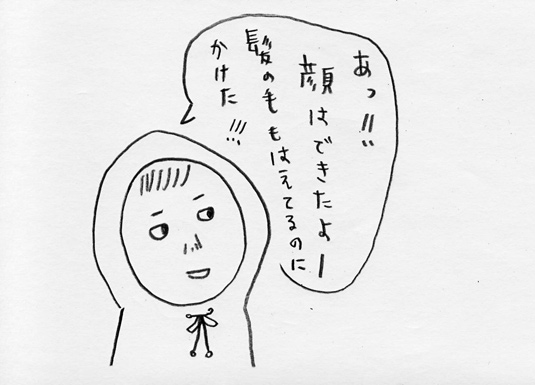 あっ!!!
顔はできたよー
髪の毛もはえてるのに
かけた!!!